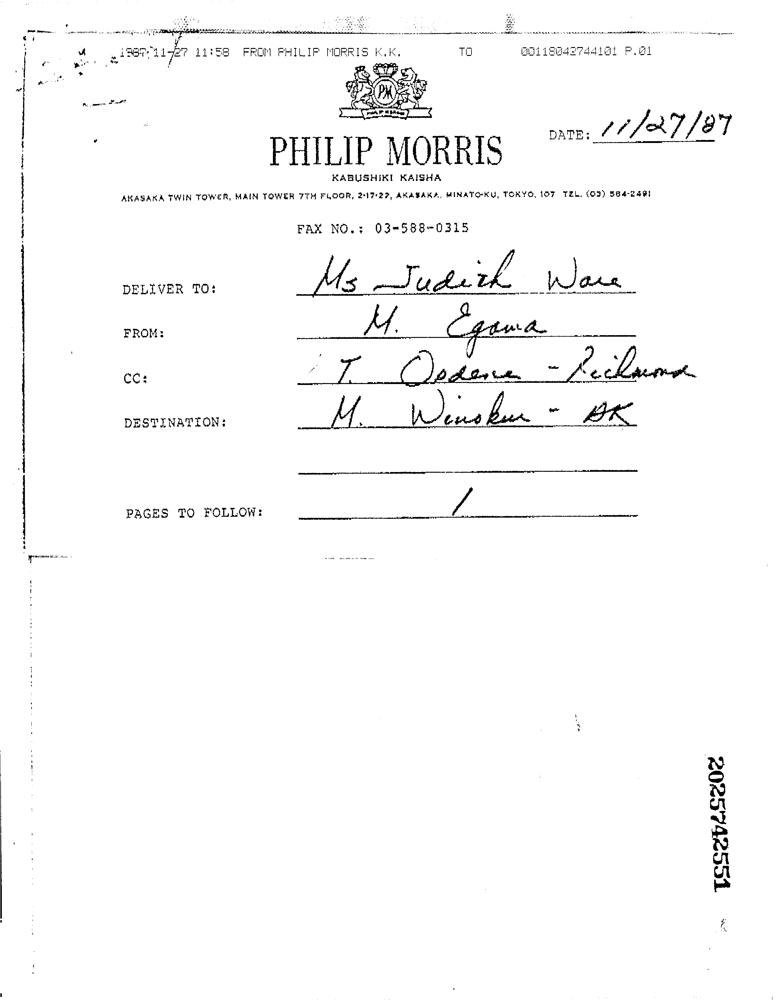 1987-11-27 11:58 FROM PHILIP MORRIS K.K. TO 00118042744101 P.01
PM
DATE: 11/27/87
PHILIP MORRIS
KABUSHIKI KAISHA
AKASAKA TWIN TOWER, MAIN TOWER 7TH FLOOR, 2-17-22, AKASAKA, MINATO-KU, TOKYO, 107 TEL. (03) 584-2491
FAX NO.: 03-588-0315
DELIVER TO: Ms Judith Ware
FROM: M. Egawa
CC: T. Osdene - Richmond
DESTINATION: M. Winokur - AK
PAGES TO FOLLOW: 1
2025742551